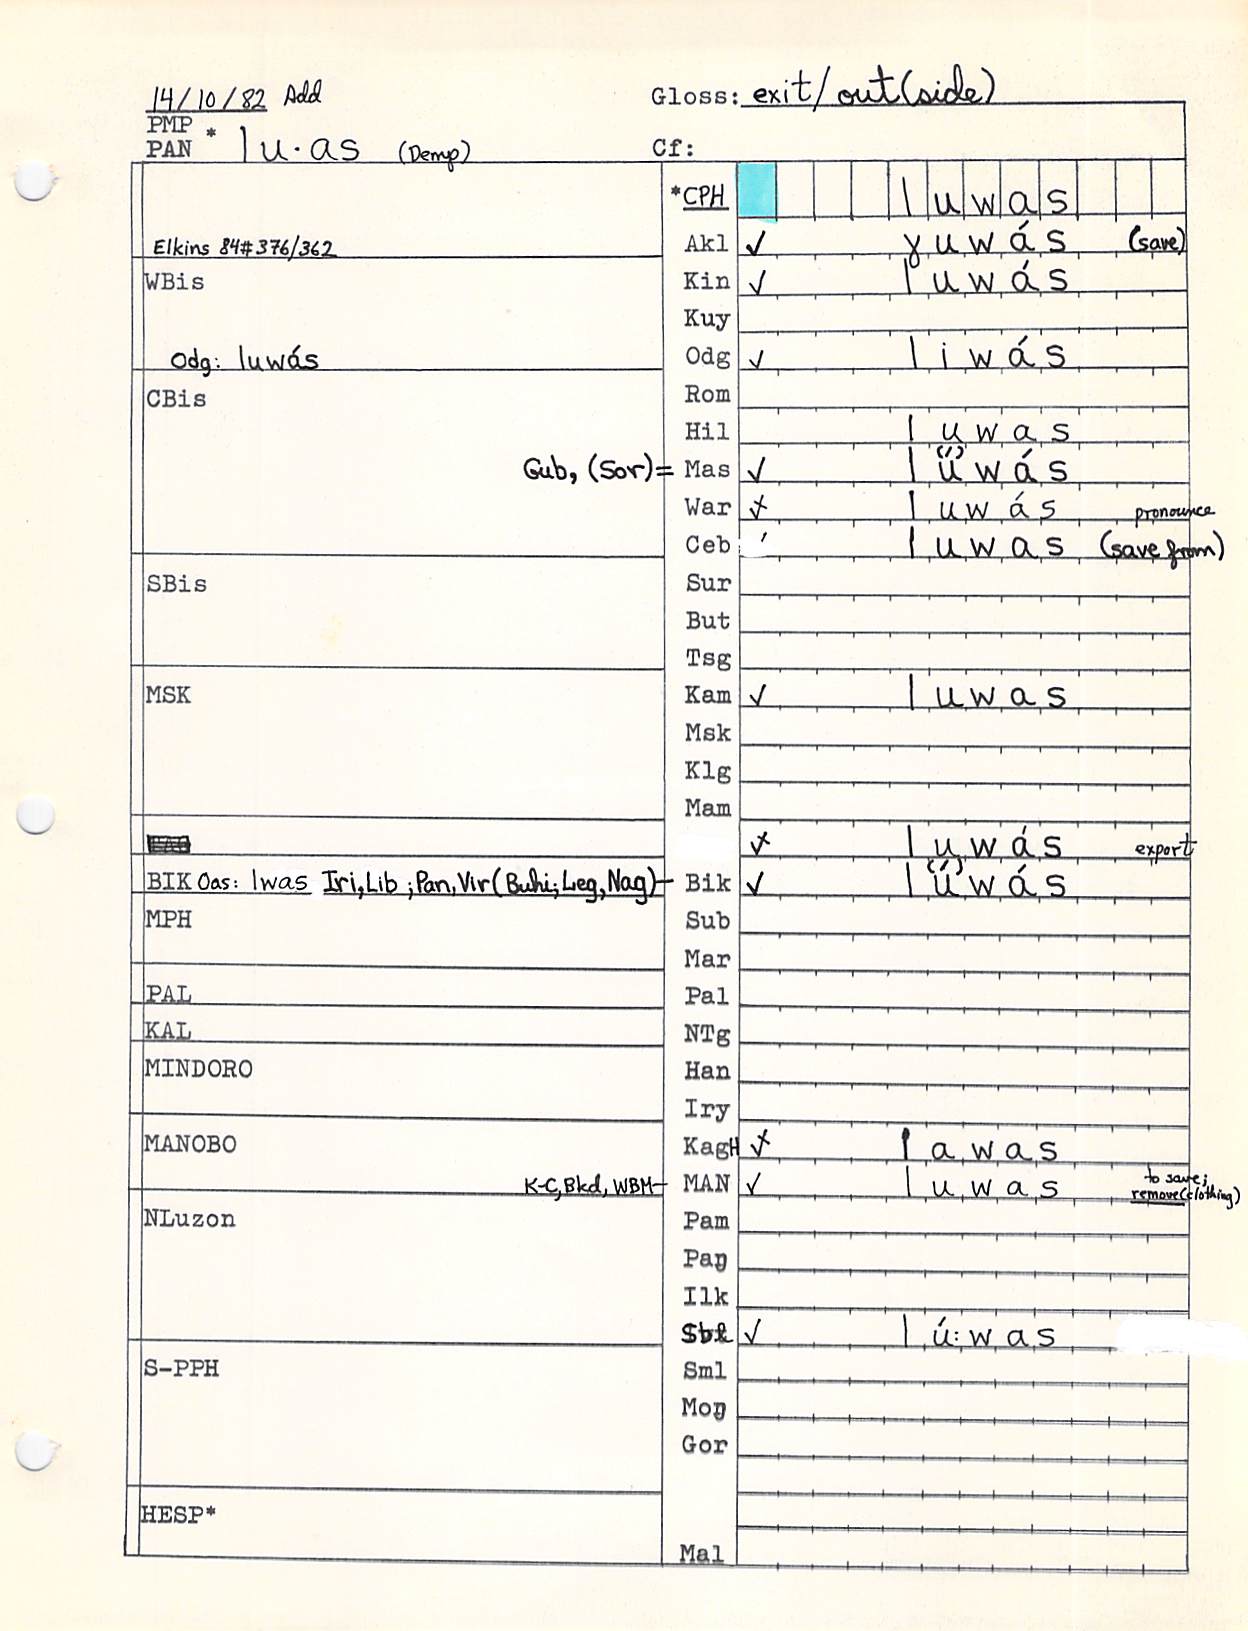 14/10/82 Add
Gloss: exit/out(side)
PMP
PAN * lu·as (Demp)
Cf:
*CPH luwas
Elkins 84#376/362
Akl ✓ ɣuwás (save)
WBis
Kin ✓ luwás
Kuy
Odg: luwás
Odg ✓ liwás
CBis
Rom
Hil luwas
Gub, (Sor)= Mas ✓ lú(́)wás
War ✓ luwás pronounce
Ceb luwas (save from)
SBis
Sur
But
Tsg
MSK
Kam ✓ luwas
Msk
Klg
Mam
luwás export
BIK Oas: lwas Iri, Lib ; Pan, Vir (Buhi; Leg, Nag) – Bik ✓ lu(́)wás
MPH
Sub
Mar
PAL
Pal
KAL
NTg
MINDORO
Han
Iry
MANOBO
KagH lawas
K-C, Bkd, WBM – MAN ✓ luwas to save; remove (clothing)
NLuzon
Pam
Paŋ
Ilk
Sbl ✓ lú:was
S-PPH
Sml
Moŋ
Gor
HESP*
Mal